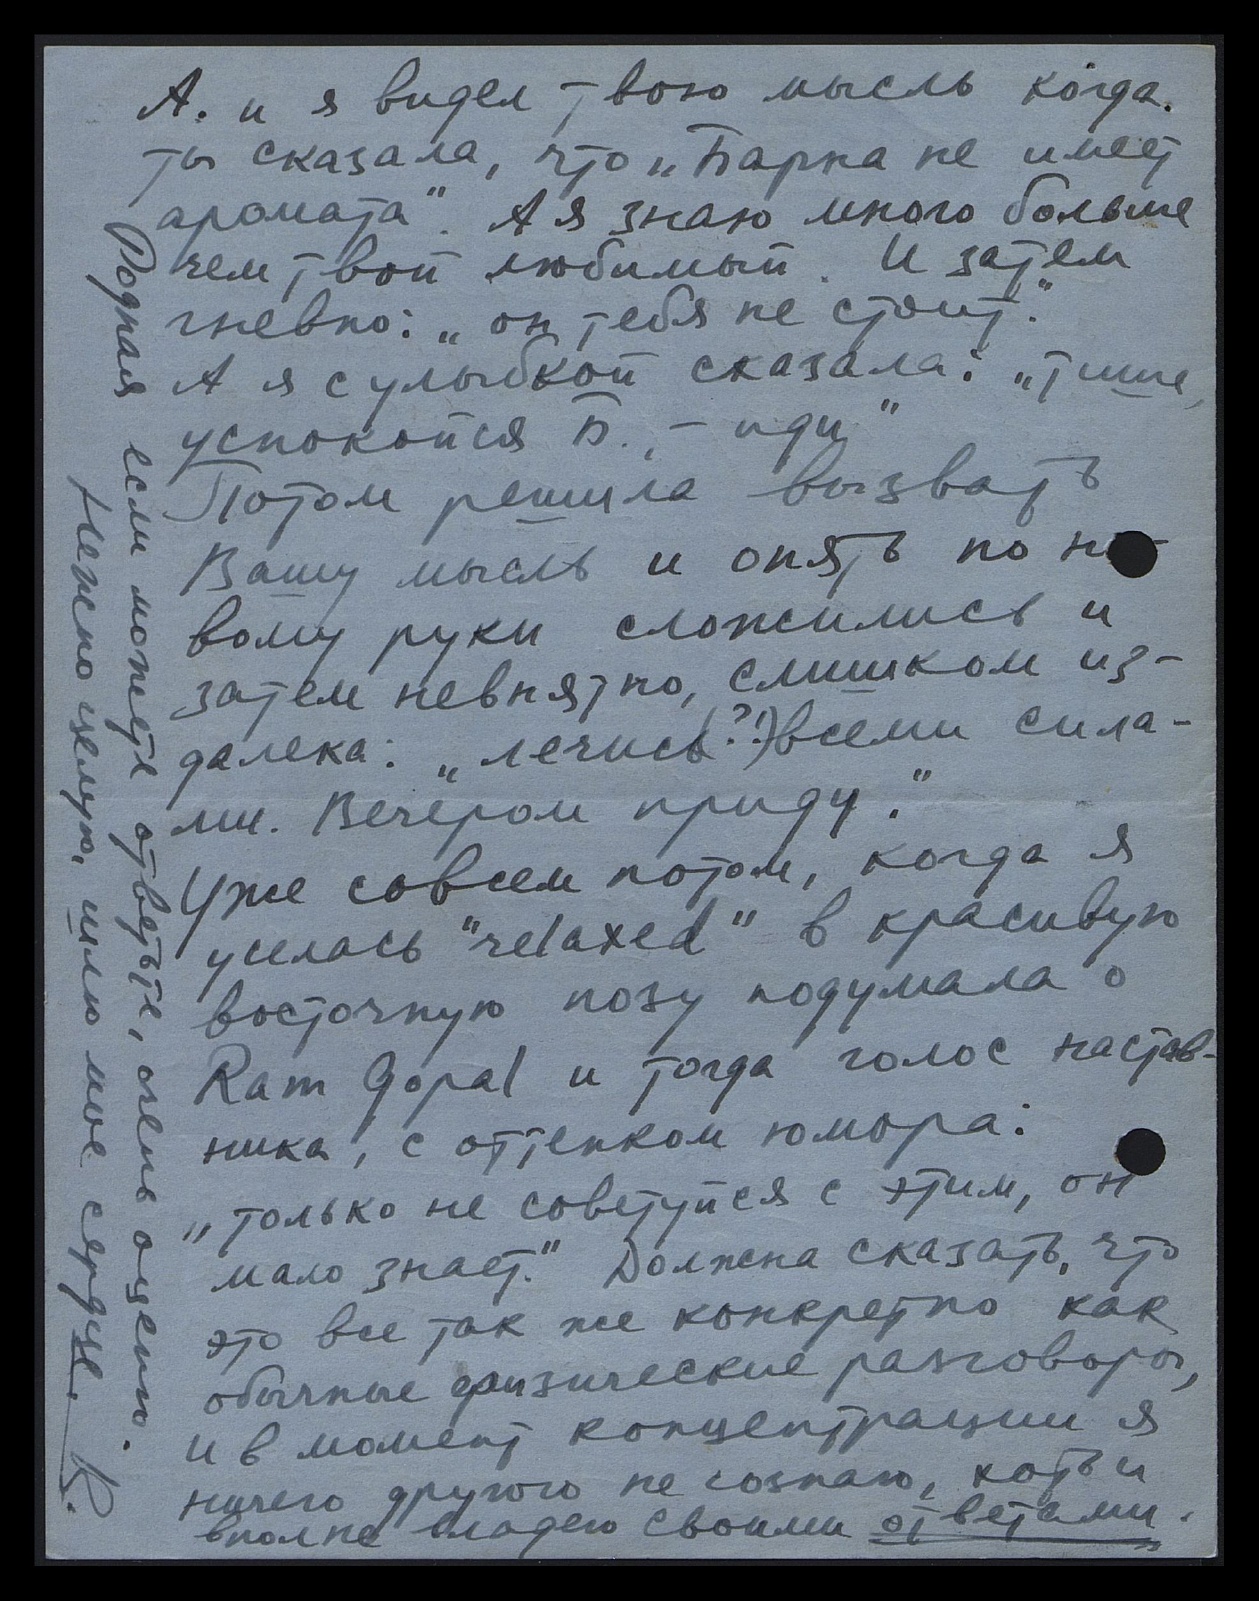 А. и я видел твою мысль когда
ты сказала, что „Барна не имеет
аромата“. А я знаю много больше
чем твой любимый. И затем
гневно: „он тебя не стоит.“
А я с улыбкой сказала: „тише,
успокойся Б., – иди“
Потом решила вызвать
Вашу мысль и опять по но-
вому руки сложились и
затем невнятно, слишком из-
далека: „лечись(?!) всеми сила-
ми. Вечером приду.“
Уже совсем потом, когда я
уселась "relaxed" в красивую
восточную позу подумала о
Ram Gopal и тогда голос настав-
ника, с оттенком юмора:
„только не советуйся с этим, он
мало знает.“ Должна сказать, что
это все так же конкретно как
обычные физические разговоры,
и в момент концентрации я
ничего другого не сознаю, хоть и
вполне владею своими ответами.
Родная если можете ответьте, очень оценю.
Нежно целую, шлю мое сердце. К.